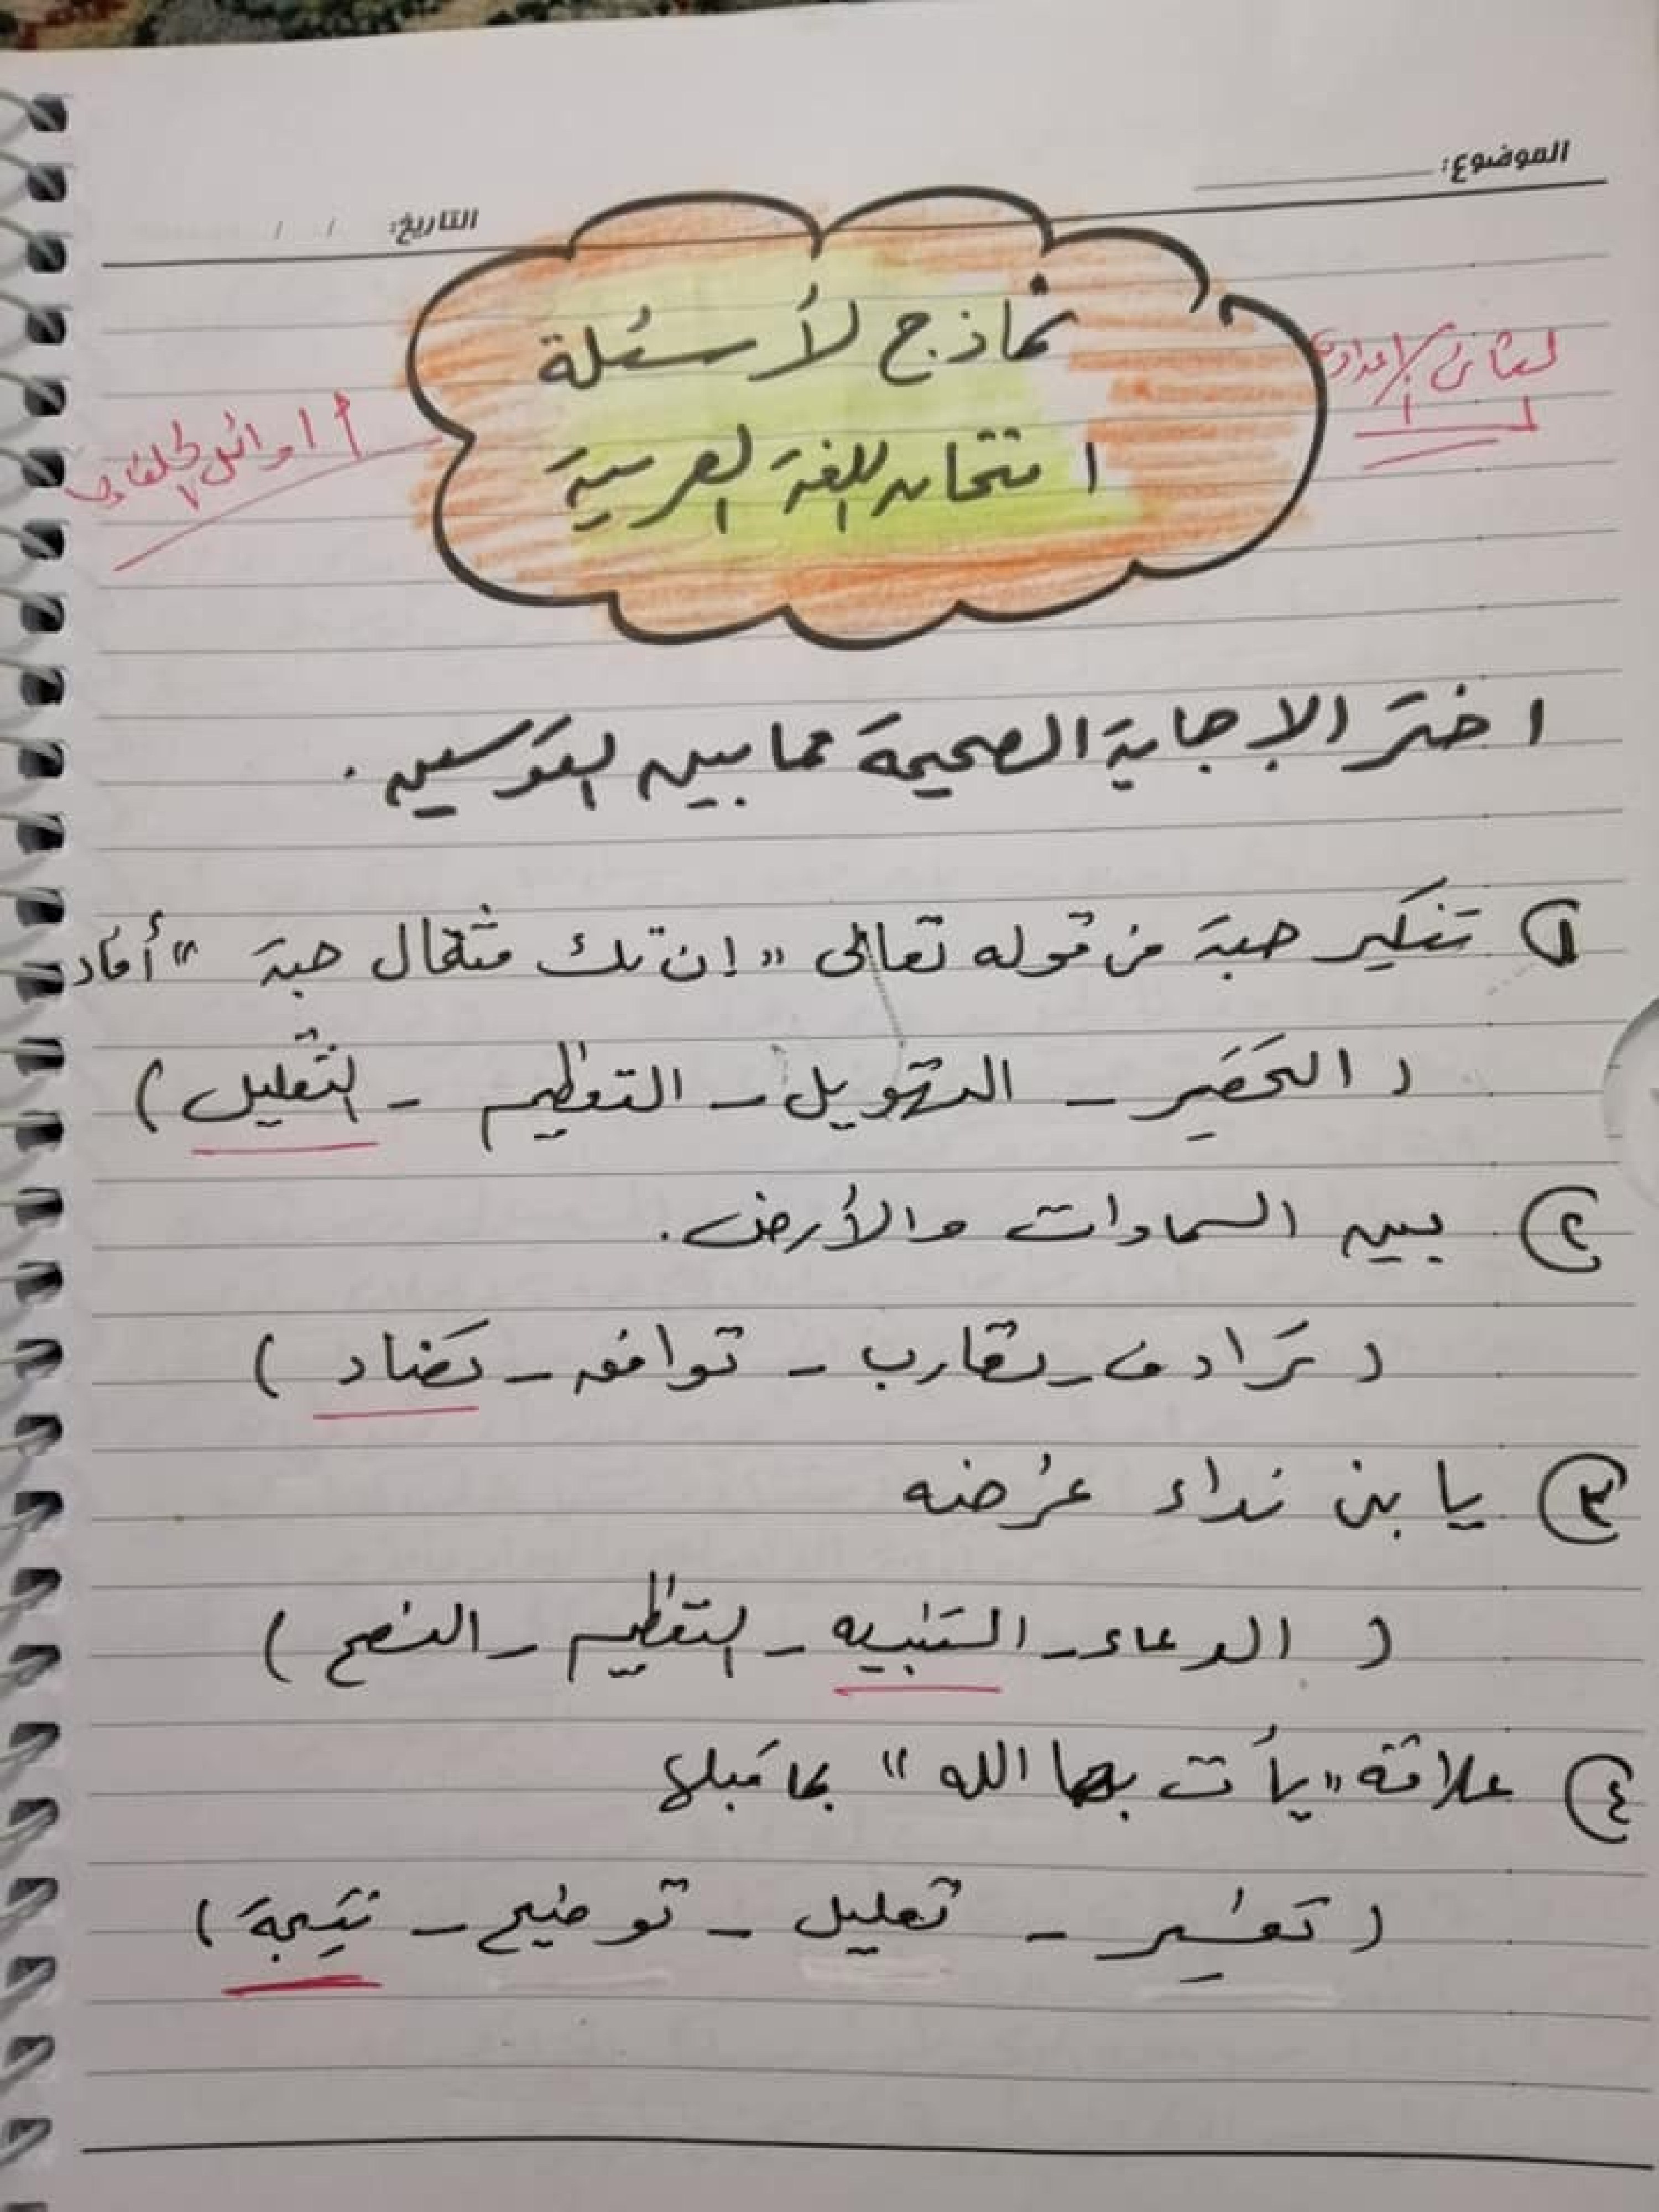 الموضوع:
التاريخ: / /
نماذج لأسئلة
امتحان اللغة العربية
اختر الإجابة الصحيحة مما بين القوسين.
١ تنكير حبة من قوله تعالى "إن تك مثقال حبة" أفاد
(التحقير - التهويل - التعظيم - التقليل)
٢ بين السماوات والأرض.
(ترادف - تقارب - توافق - تضاد)
٣ يا بني نداء غرضه
(الدعاء - التنبيه - التعظيم - النصح)
٤ علاقة "يأت بها الله" بما قبلها
(تفسير - تعليل - توضيح - نتيجة)